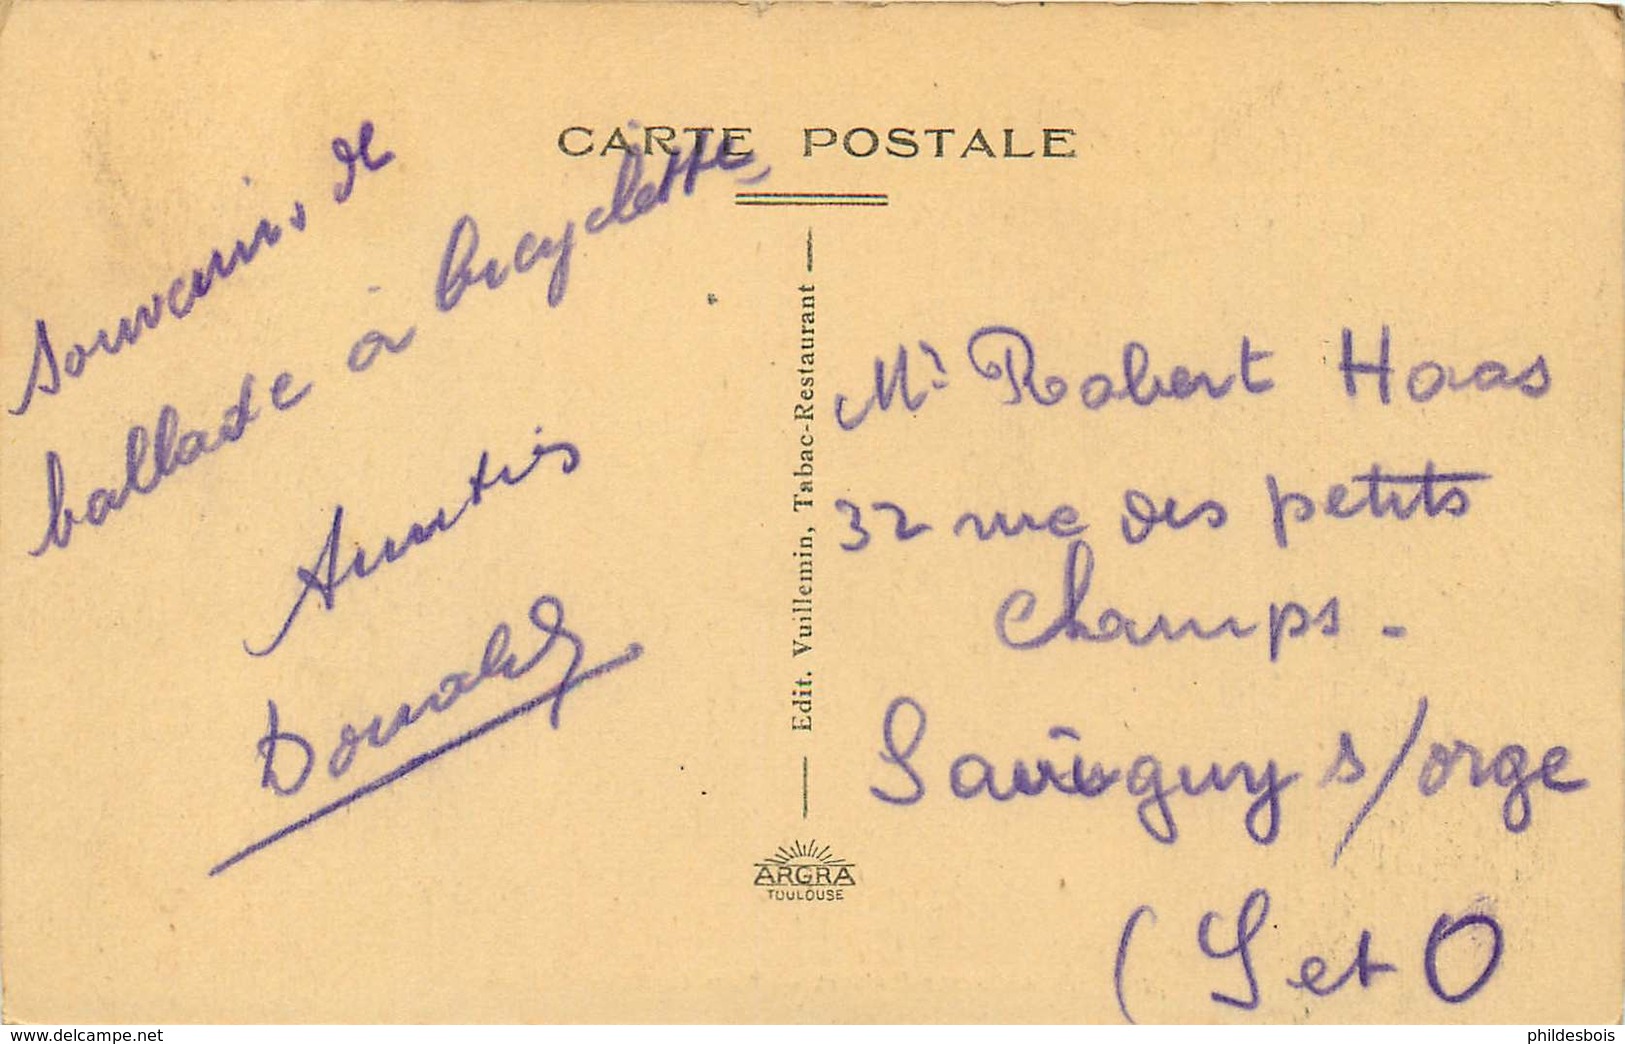 CARTE POSTALE
Souvenirs de
ballade à bicyclette
Amitiés
Donald
Edit. Vuillemin, Tabac-Restaurant
ARGRA
TOULOUSE
Mr Robert Haas
32 rue des petits
champs.
Savigny s/orge
(S et O
www.delcampe.net
phildesbois